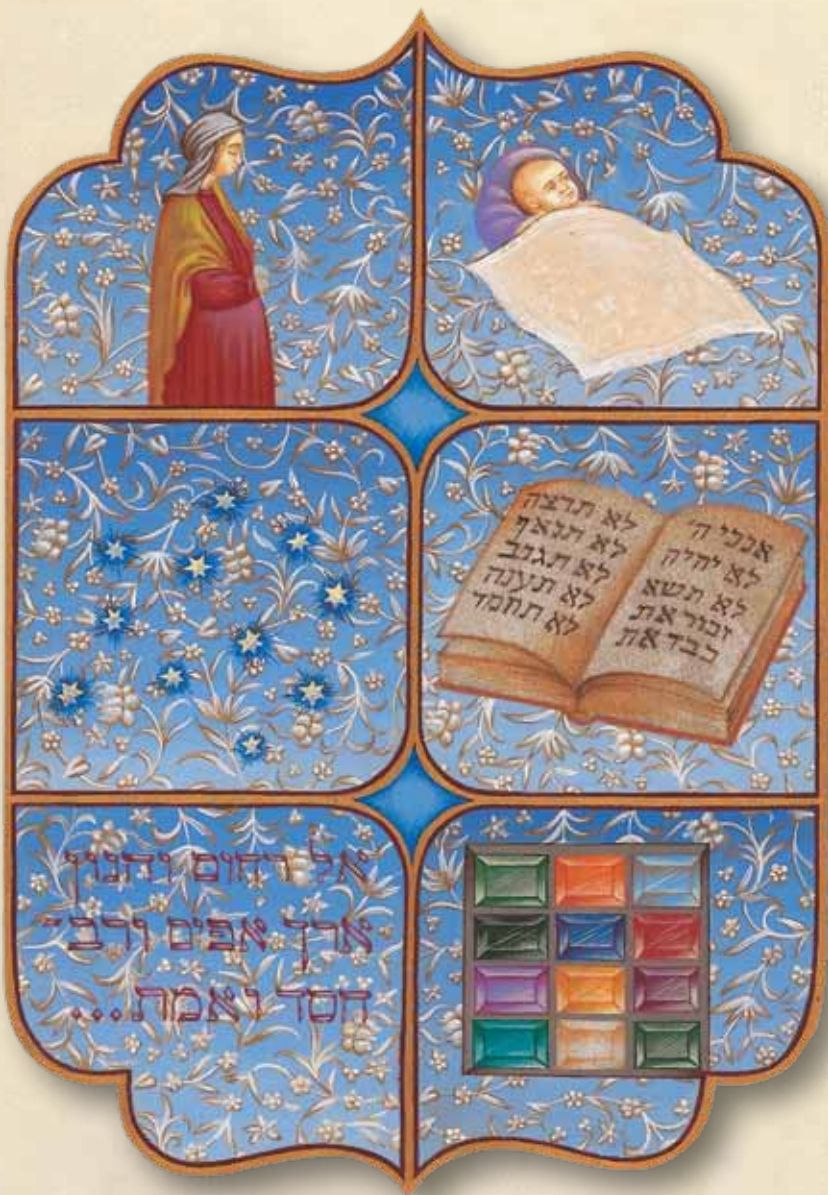 אנכי ה'
לא יהיה
לא תשא
זכור את
כבד את
לא תרצח
לא תנאף
לא תגנב
לא תענה
לא תחמד
אל רחום וחנון
ארך אפים ורב־
חסד ואמת...